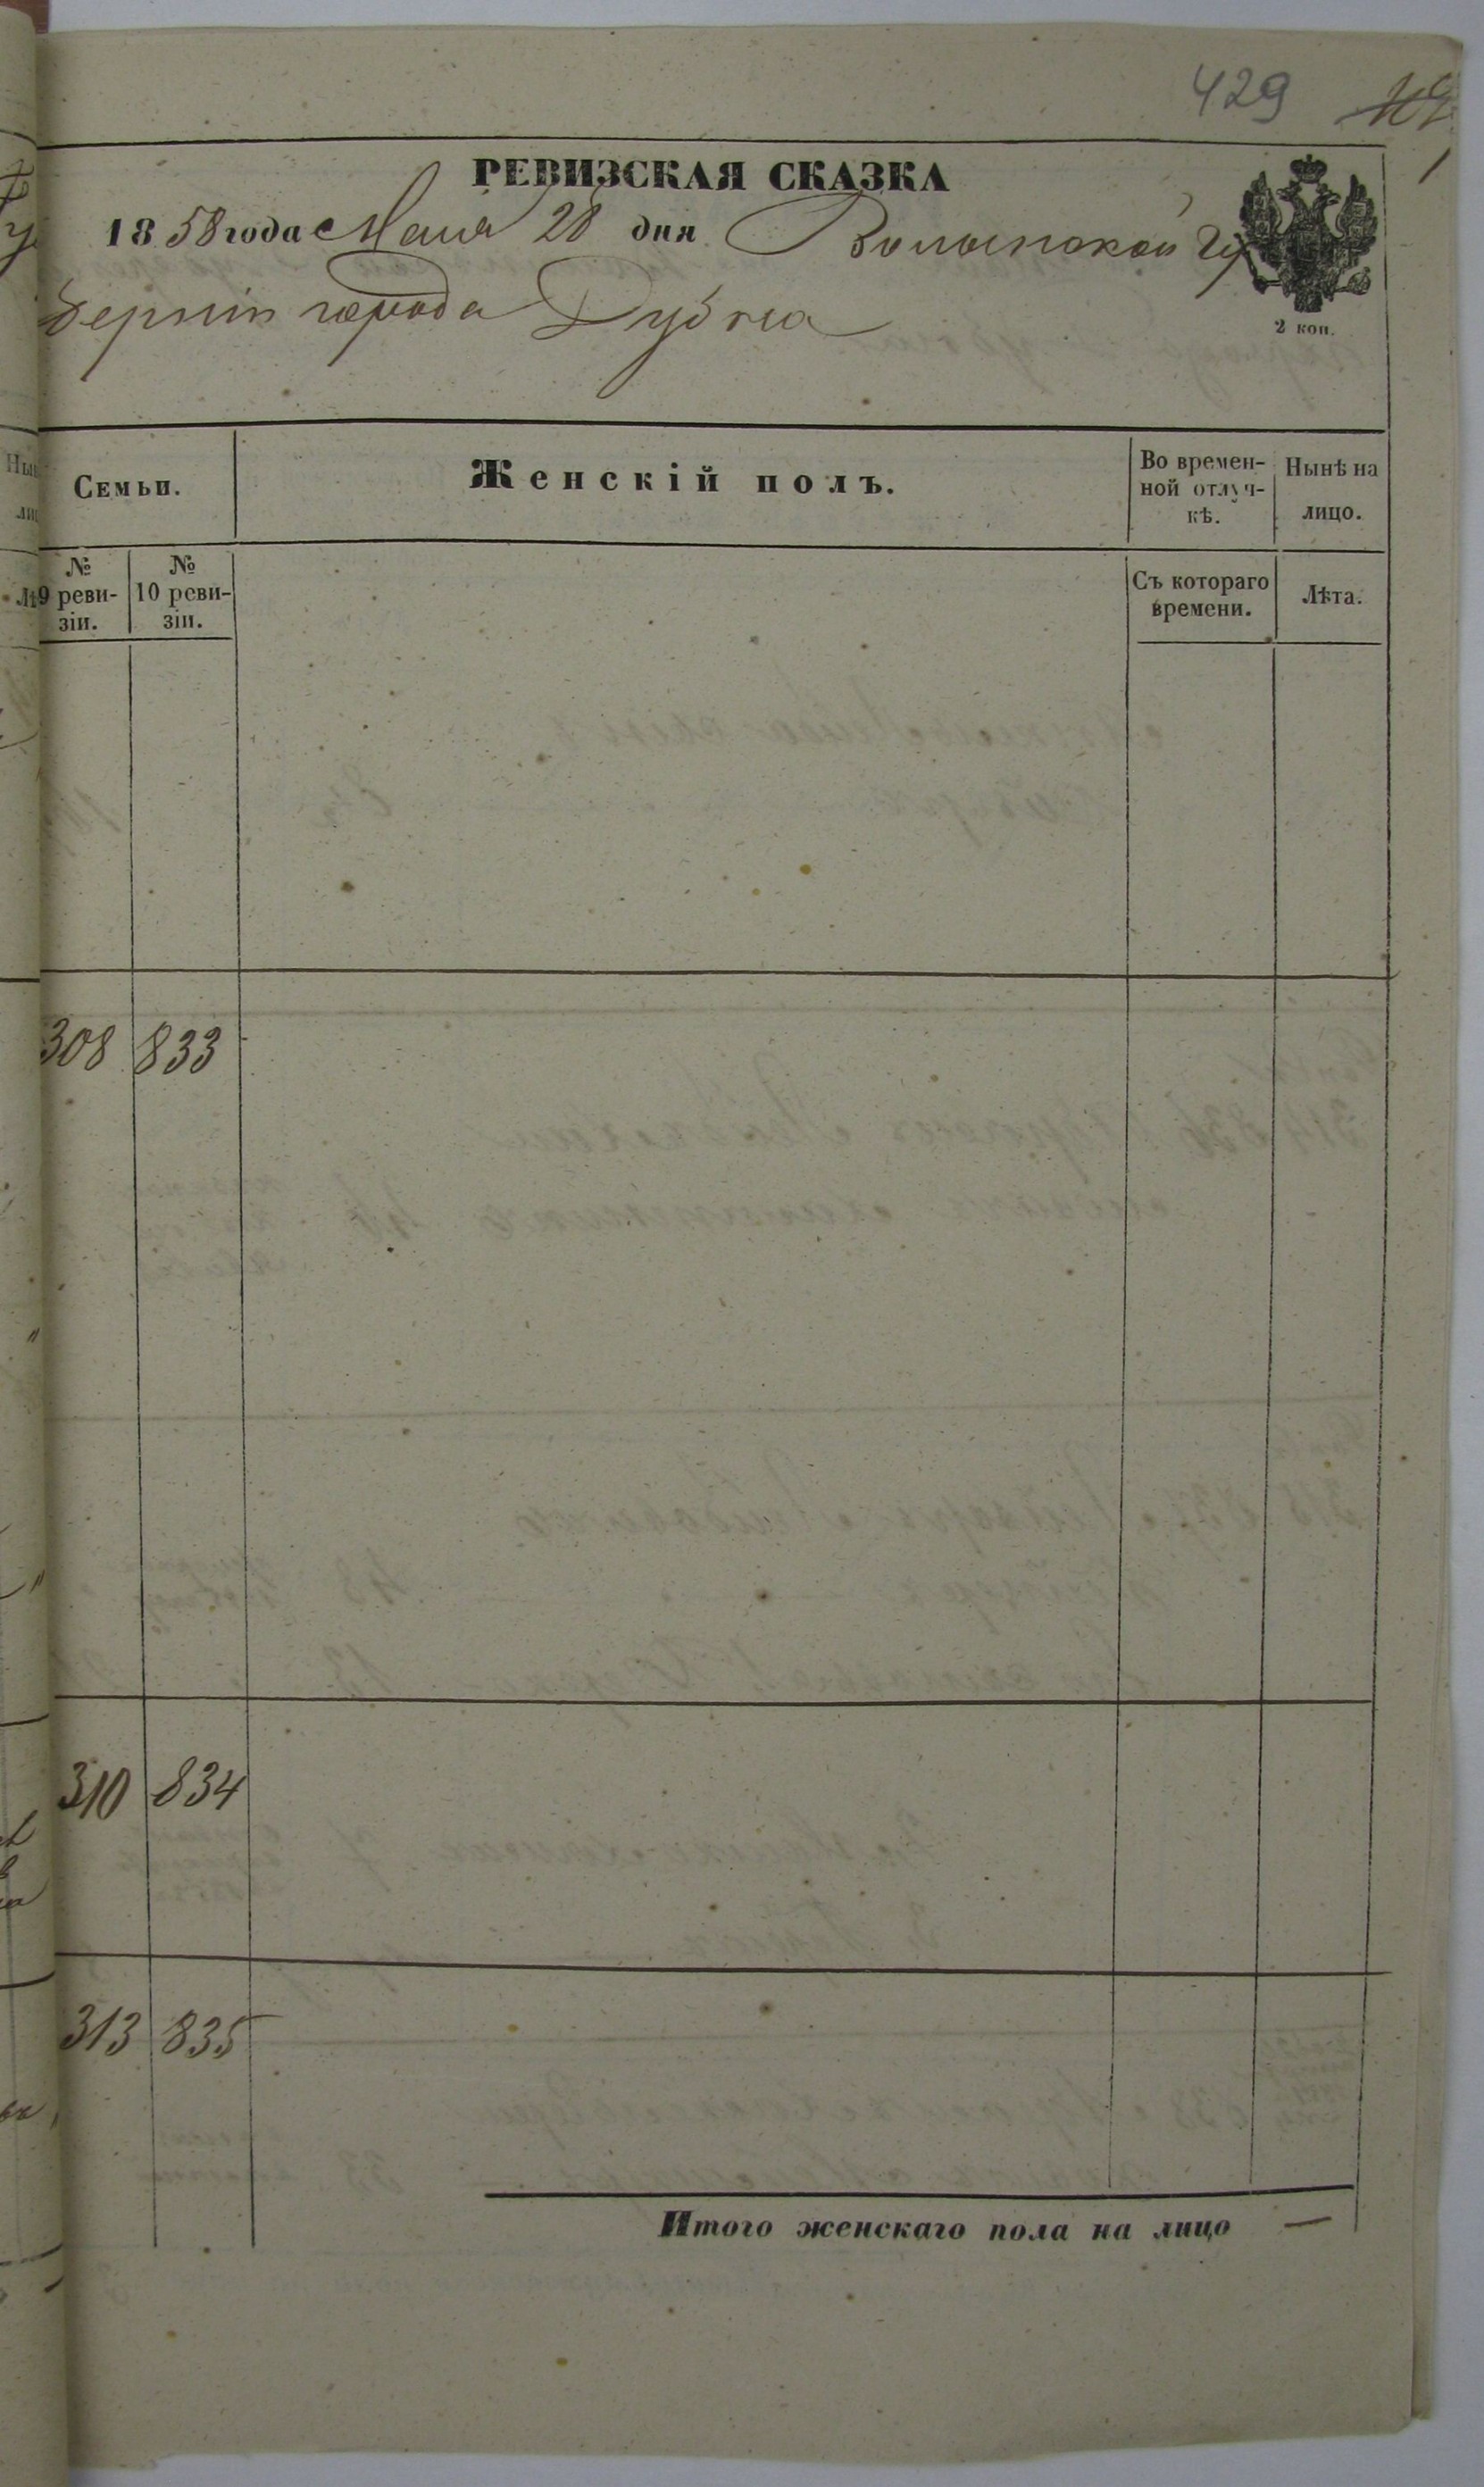 429
РЕВИЗСКАЯ СКАЗКА
1858 года Мая 28 дня Волынской Гу
берніи города Дубна
2 коп.
Семьи.
Женскій полъ.
Во времен-
ной отлуч-
кѣ.
Нынѣ на
лицо.
№
9 реви-
зіи.
№
10 реви-
зіи.
Съ котораго
времени.
Лѣта.
308 833
310 834
313 835
Итого женскаго пола на лицо —